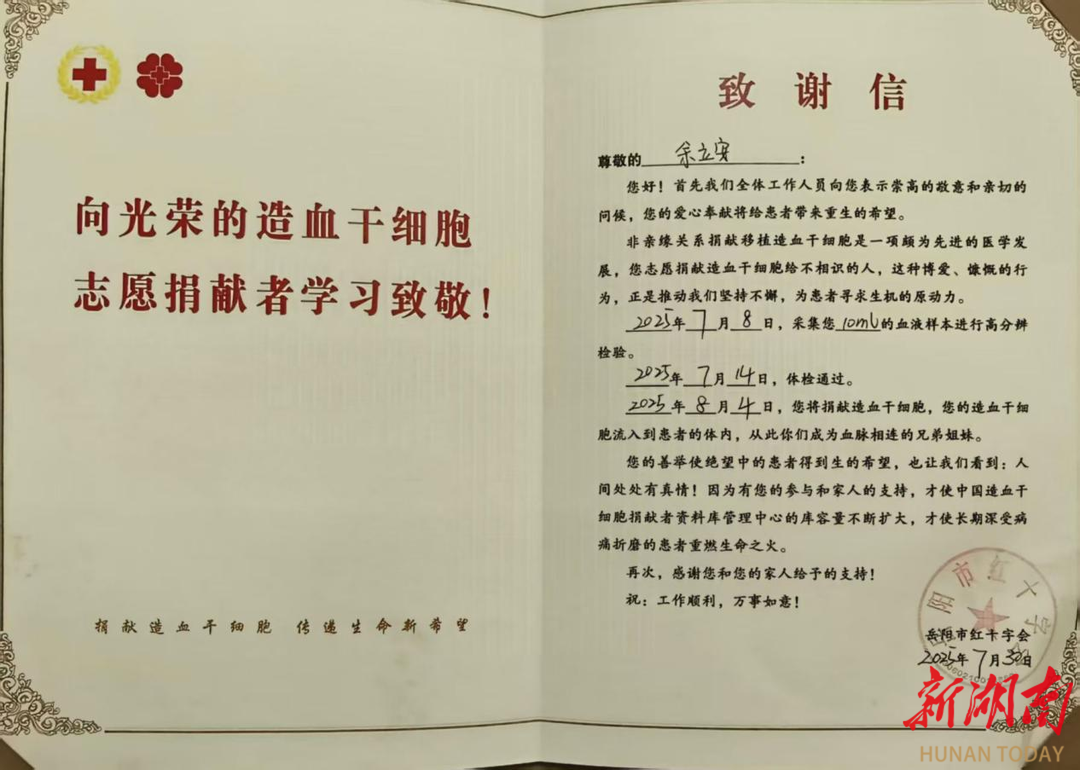 向光荣的造血干细胞
志愿捐献者学习致敬！
捐献造血干细胞 传递生命新希望
致谢信
尊敬的余立安：
您好！首先我们全体工作人员向您表示崇高的敬意和亲切的
问候，您的爱心奉献将给患者带来重生的希望。
非亲缘关系捐献移植造血干细胞是一项颇为先进的医学发
展，您志愿捐献造血干细胞给不相识的人，这种博爱、慷慨的行
为，正是推动我们坚持不懈，为患者寻求生机的原动力。
2025年7月8日，采集您10ml的血液样本进行高分辨
检验。
2025年7月14日，体检通过。
2025年8月4日，您将捐献造血干细胞，您的造血干细
胞流入到患者的体内，从此你们成为血脉相连的兄弟姐妹。
您的善举使绝望中的患者得到生的希望，也让我们看到：人
间处处有真情！因为有您的参与和家人的支持，才使中国造血干
细胞捐献者资料库管理中心的库容量不断扩大，才使长期深受病
痛折磨的患者重燃生命之火。
再次，感谢您和您的家人给予的支持！
祝：工作顺利，万事如意！
岳阳市红十字会
岳阳市红十字会
2025年7月30日
新湖南
HUNAN TODAY